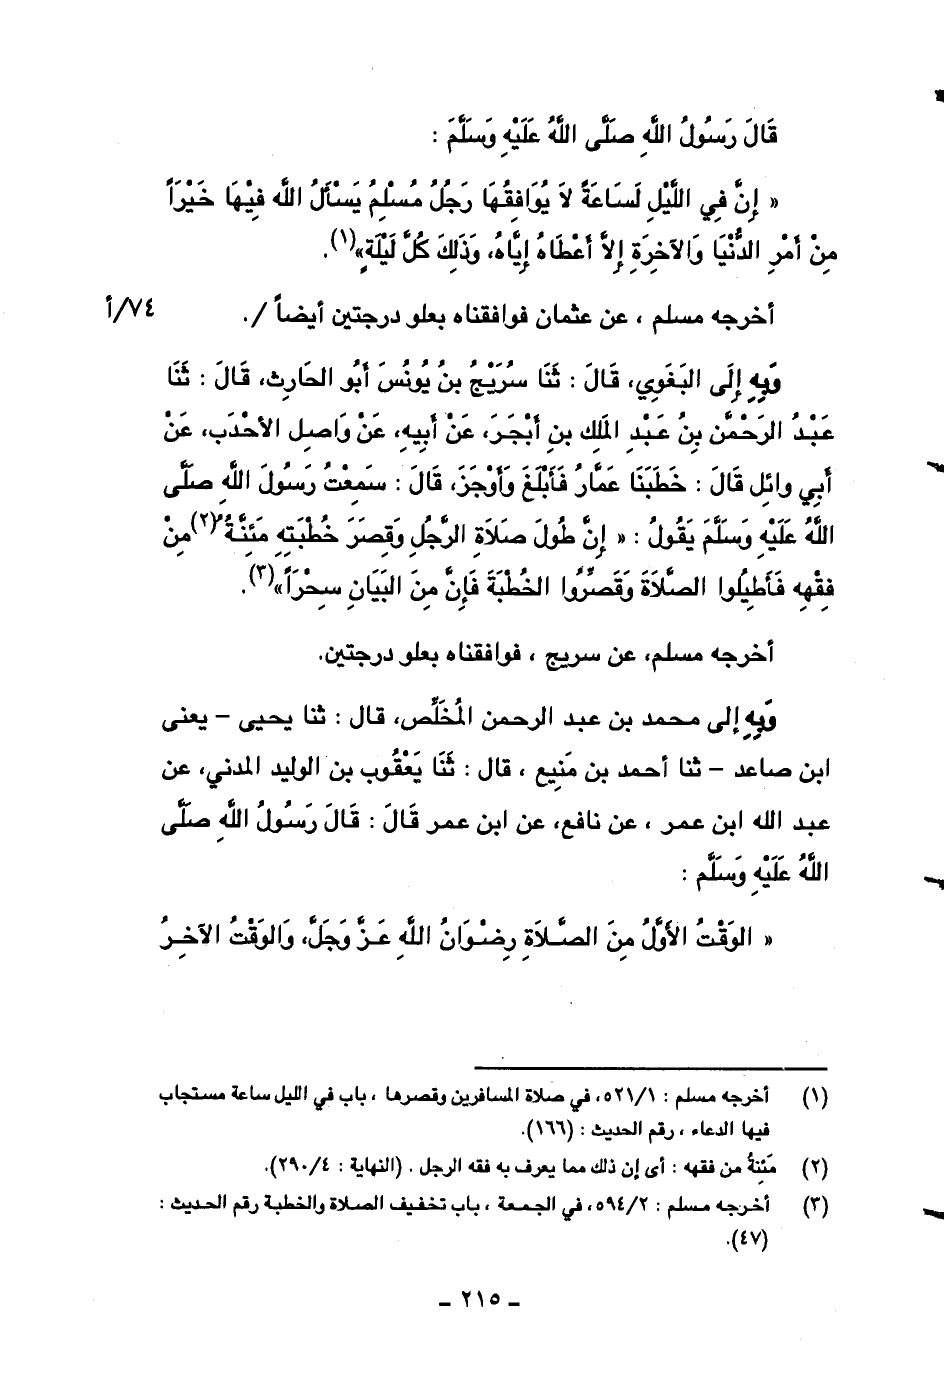 قَالَ رَسُولُ اللَّهِ صَلَّى اللَّهُ عَلَيْهِ وَسَلَّمَ :
« إِنَّ فِي اللَّيْلِ لَسَاعَةً لاَ يُوَافِقُهَا رَجُلٌ مُسْلِمٌ يَسْأَلُ اللَّه فِيْهَا خَيْرَاً
مِنْ أَمْرِ الدُّنْيَا وَالآخِرَةِ إِلاَّ أَعْطَاهُ إِيَّاهُ، وَذَلِكَ كُلَّ لَيْلَةٍ»(١).
أخرجه مسلم ، عن عثمان فوافقناه بعلو درجتين أيضاً /. ٧٤/أ
وَبِهِ إِلَى البَغَوِي، قَالَ : ثَنَا سُرَيْجُ بنُ يُونُسَ أَبُو الحَارِث، قَالَ : ثَنَا
عَبْدُ الرَحْمَّنِ بنُ عَبْدِ المَلِك بنِ أَبْجَرَ، عَنْ أَبِيهِ، عَنْ وَاصِلِ الأَحْدَب، عَنْ
أَبِي وائِل قَالَ : خَطَبَنَا عَمَّارُ فَأَبْلَغَ وَأَوْجَزَ، قَالَ : سَمِعْتُ رَسُولَ اللَّهِ صَلَّى
اللَّهُ عَلَيْهِ وَسَلَّمَ يَقُولُ : « إِنَّ طُولَ صَلَاَةِ الرَّجُلِ وَقِصَرَ خُطْبَتِهِ مَئِنَّةٌ(٢) مِنْ
فِقْهِهِ فَأَطِيْلُوا الصَّلَاَةَ وَقَصِّرُوا الخُطْبَةَ فَإِنَّ مِنَ البَيَانِ سِحْرَاً»(٣).
أخرجه مسلم، عن سريج ، فوافقناه بعلو درجتين.
وَبِهِ إلى محمد بن عبد الرحمن المُخَلِّص، قال : ثنا يحيى – يعنى
ابن صاعد – ثنا أحمد بن مَنِيع ، قال : ثَنَا يَعْقُوب بن الوليد المدني، عن
عبد الله ابن عمر ، عن نافع، عن ابن عمر قَالَ : قَالَ رَسُولُ اللَّهِ صَلَّى
اللَّهُ عَلَيْهِ وَسَلَّم :
« الوَقْتُ الأَوَّلُ مِنَ الصَّلَاةِ رِضْوَانُ اللَّهِ عَزَّ وَجَلَّ، وَالوَقْتُ الآخِرُ
(١) أخرجه مسلم : ٥٢١/١، في صلاة المسافرين وقصرها ، باب في الليل ساعة مستجاب
فيها الدعاء ، رقم الحديث : (١٦٦).
(٢) مَئِنةُ من فقهه : أى إن ذلك مما يعرف به فقه الرجل . (النهاية : ٢٩٠/٤).
(٣) أخرجه مسلم : ٥٩٤/٢، في الجمعة ، باب تخفيف الصلاة والخطبة رقم الحديث :
(٤٧).
ـ ٢١٥ ـ